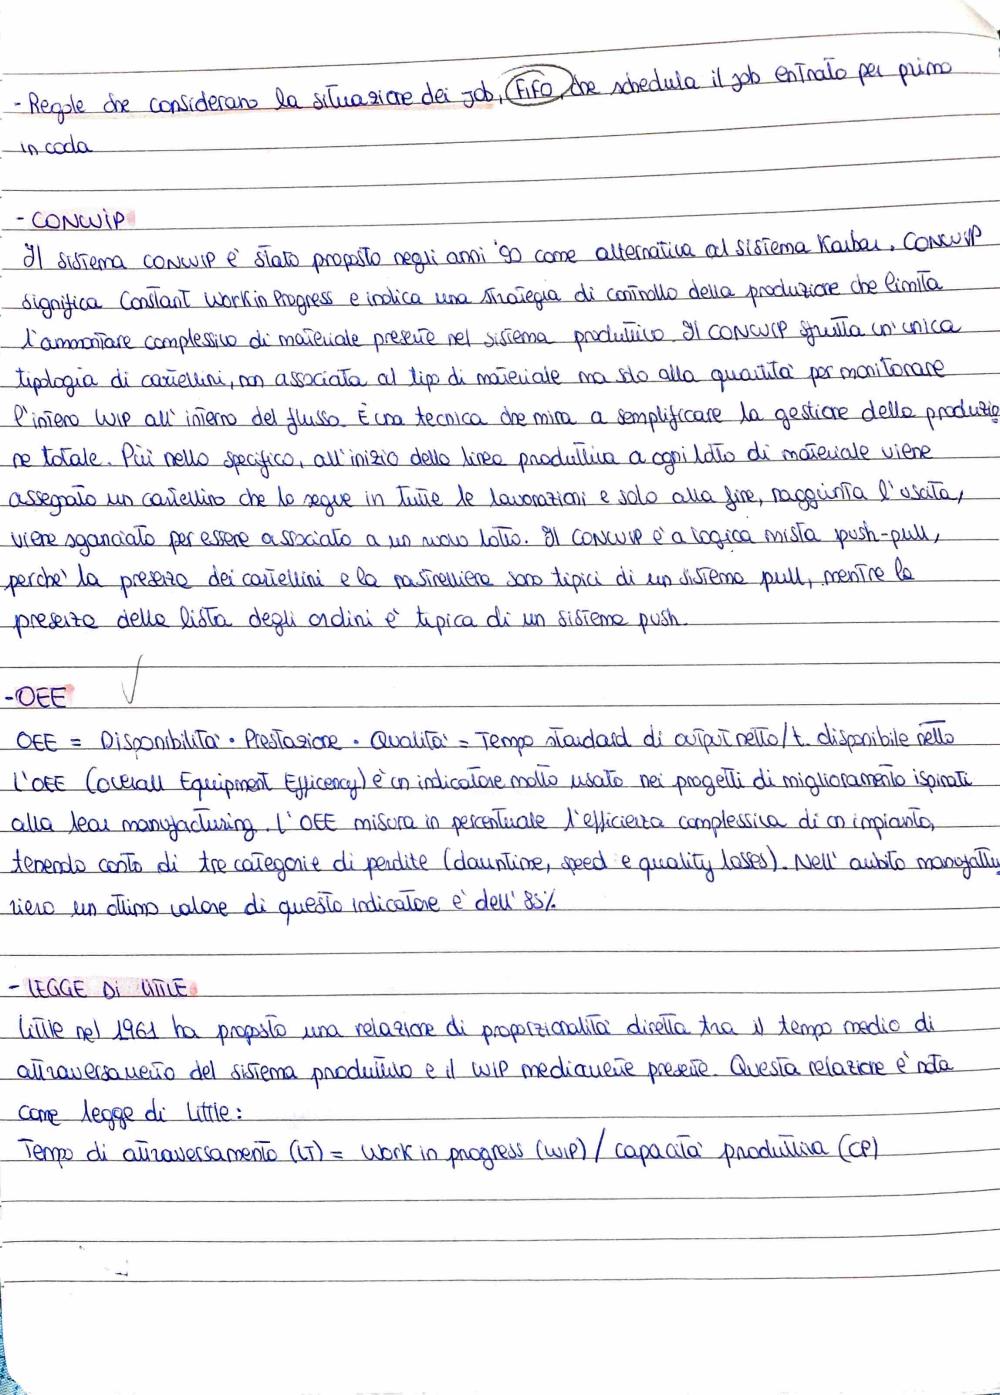 - Regole che considerano la situazione dei job, FiFO, che schedula il job entrato per primo
in coda
- CONWIP
Il sistema CONWIP è stato proposto negli anni '90 come alternativa al sistema Kanban. CONWIP
significa Constant Work in Progress e indica una strategia di controllo della produzione che limita
l'ammontare complessivo di materiale presente nel sistema produttivo. Il CONWIP sfrutta un'unica
tipologia di cartellini, non associata al tipo di materiale ma solo alla quantità per monitorare
l'intero WIP all'interno del flusso. È una tecnica che mira a semplificare la gestione della produzio
ne totale. Più nello specifico, all'inizio della linea produttiva a ogni lotto di materiale viene
assegnato un cartellino che lo segue in tutte le lavorazioni e solo alla fine, raggiunta l'uscita,
viene sganciato per essere associato a un nuovo lotto. Il CONWIP è a logica mista push-pull,
perche' la presenza dei cartellini e la rastrelliera sono tipici di un sistema pull, mentre la
presenza della lista degli ordini è tipica di un sistema push.
- OEE
OEE = Disponibilità · Prestazione · Qualità = Tempo standard di output netto/t. disponibile netto
L'OEE (overall Equipment Efficency) è un indicatore molto usato nei progetti di miglioramento ispirati
alla lean manufacturing. L'OEE misura in percentuale l'efficienza complessiva di un impianto,
tenendo conto di tre categorie di perdite (dauntime, speed e quality losses). Nell'ambito manifattu
riero un ottimo valore di questo indicatore è dell'85%.
- LEGGE Di LITTLE
Little nel 1961 ha proposto una relazione di proporzionalità diretta tra il tempo medio di
attraversamento del sistema produttivo e il WIP mediamente presente. Questa relazione è nota
come legge di Little:
Tempo di attraversamento (LT) = Work in progress (WIP) / capacità produttiva (CP)